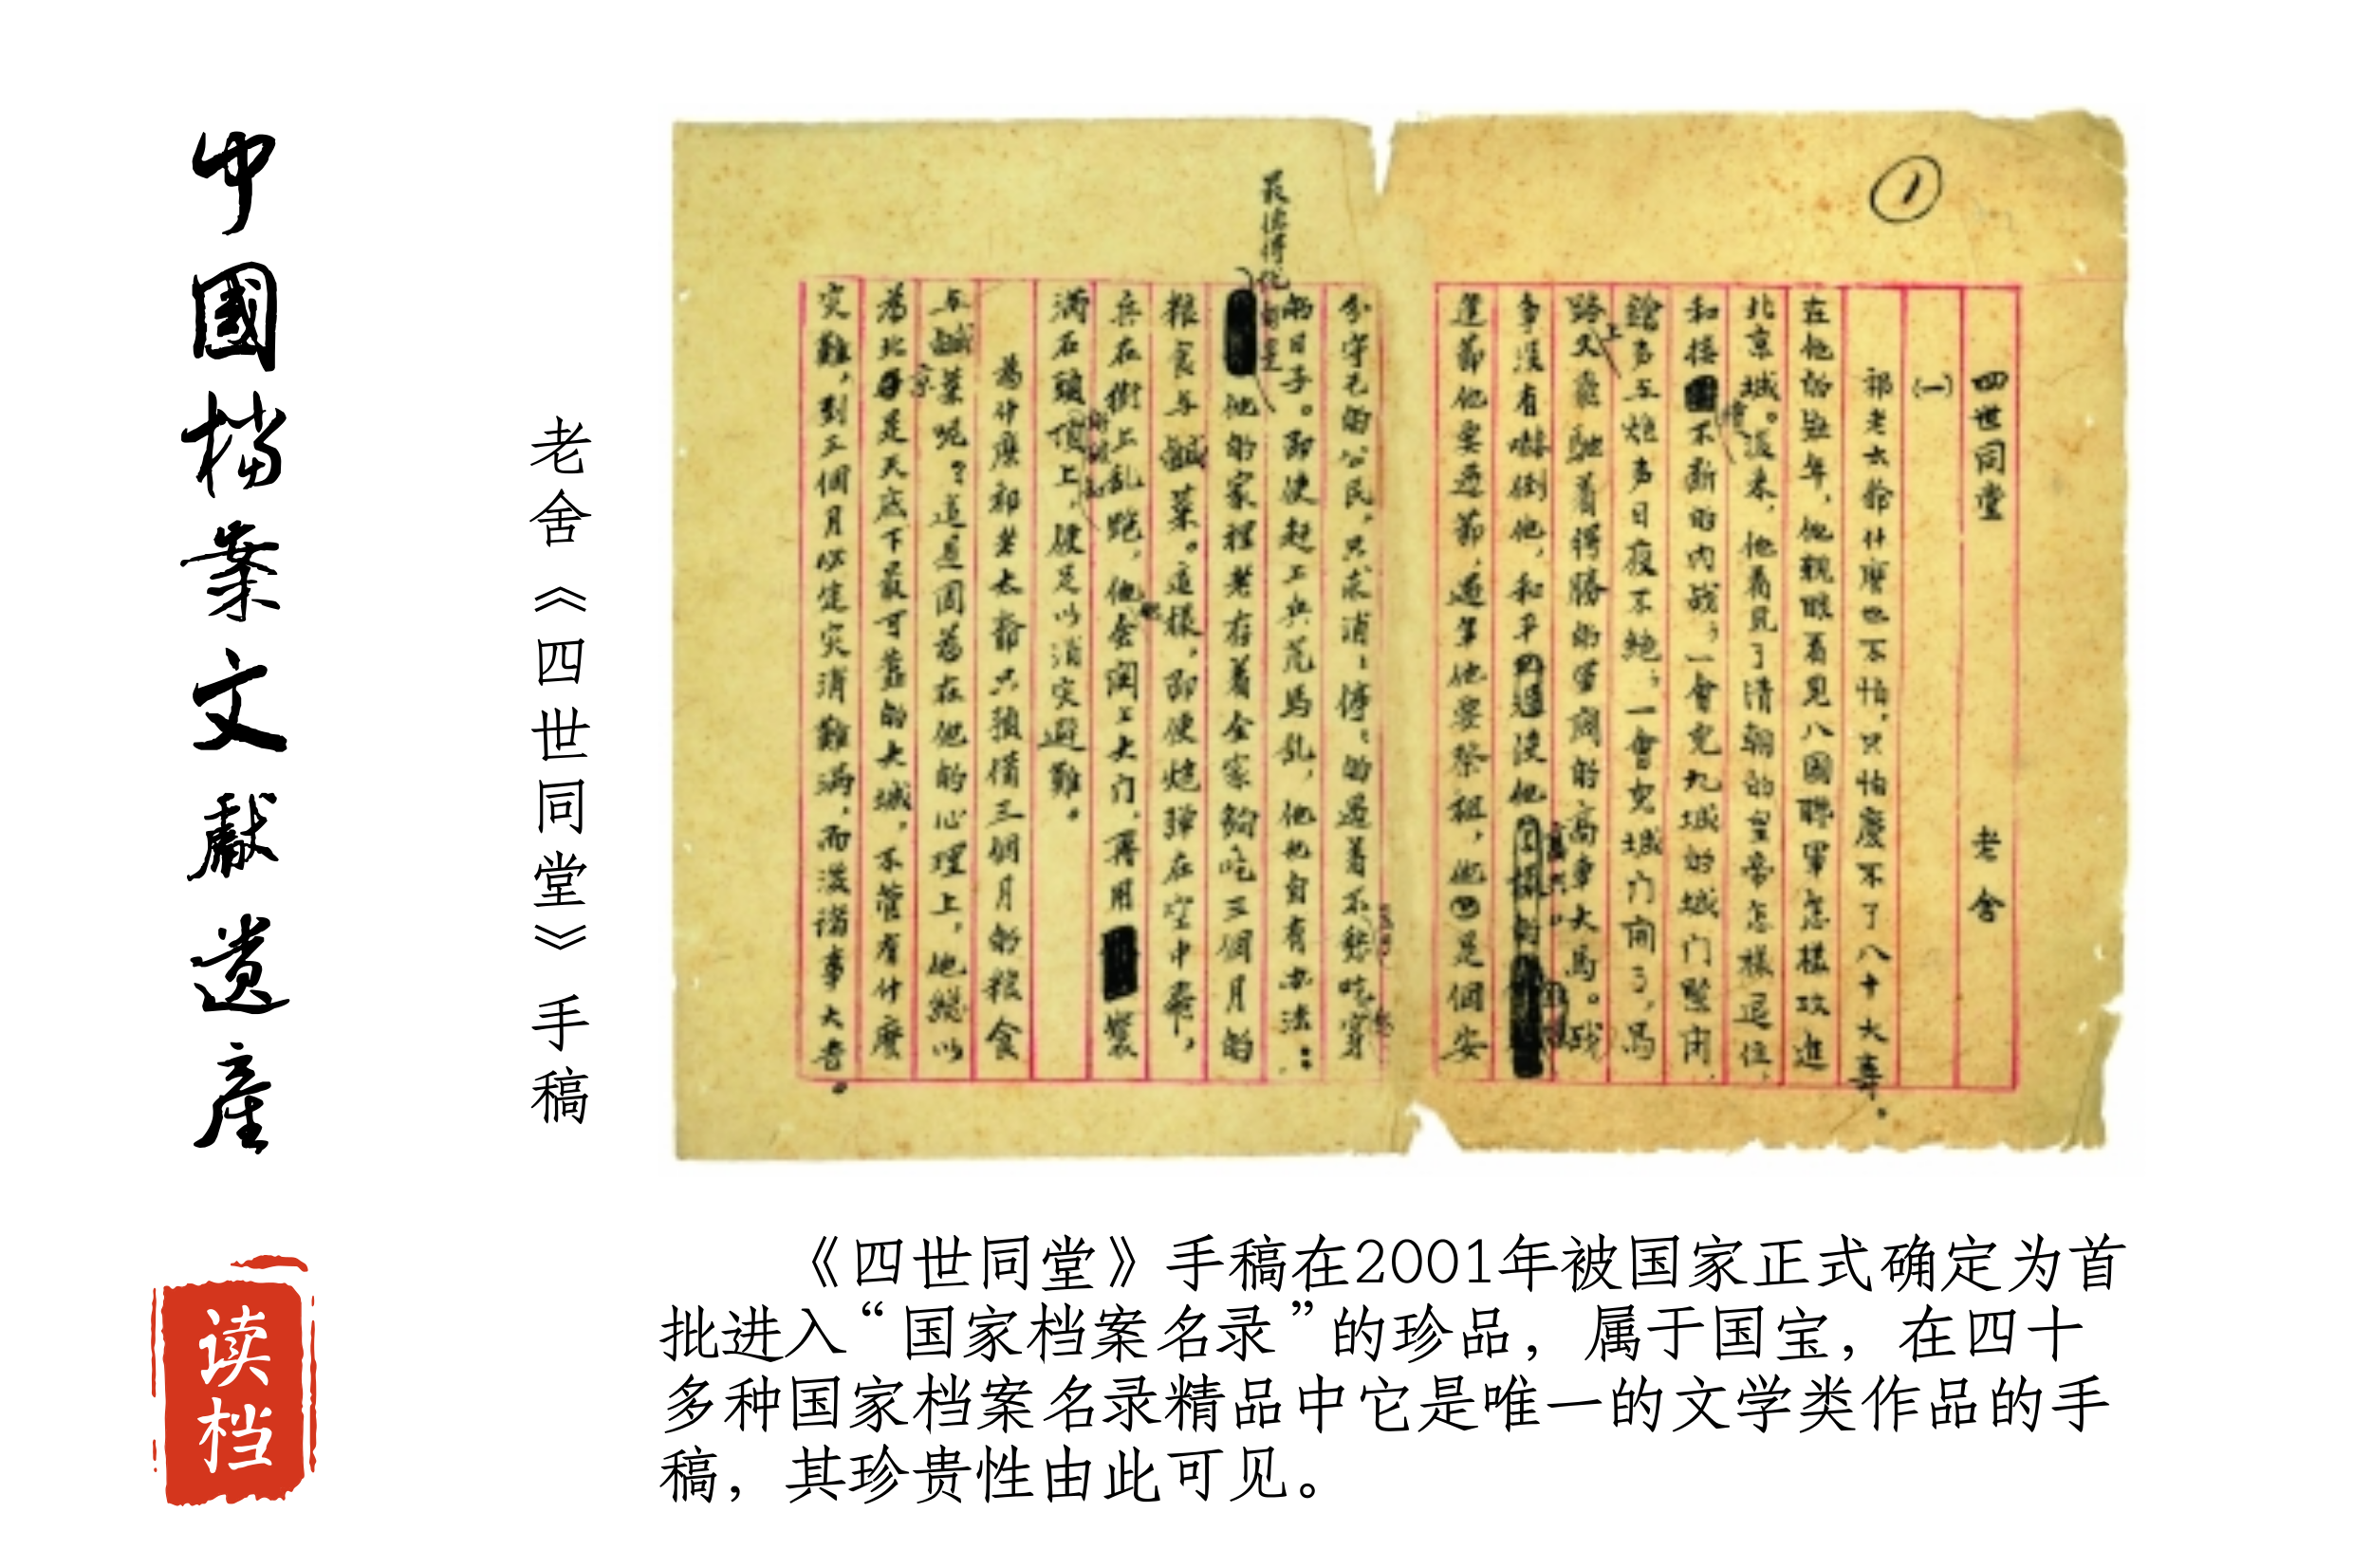 中國檔案文獻遺產
读档
老舍《四世同堂》手稿
1
四世同堂 老舍
(一)
祁老太爺什麼也不怕,只怕慶不了八十大壽。
在他的壯年,他親眼看見八國聯軍怎樣攻進
北京城。後來,他看見了清朝的皇帝怎樣退位,
和接續不斷的內战;一會兒九城的城門緊闭,
鎗声与炮声日夜不絕;一會兒城门開了,馬
路上又飛馳着得勝的軍閥的高車大馬。战
爭沒有嚇倒他,和平
逢節他要過節,過年他要祭祖,他是個安
分守己的公民,只求消消停停的過着不愁吃穿
的日子。即使赶上兵荒馬乱,他也自有办法:
最值得說的是他的家裡老存着全家夠吃三個月的
粮食与鹹菜。這樣,即使炮彈在空中飛,
兵在街上乱跑,他会關上大门,再用裝
满石頭的破缸頂上,便足以消灾避難。
為什麼祁老太爺只預備三個月的粮食
与鹹菜呢?這是因為在他的心理上,他總以
為北京是天底下最可靠的大城,不管有什麼
灾難,到三個月必定灾消難满,而後諸事大吉。
《四世同堂》手稿在2001年被国家正式确定为首
批进入“国家档案名录”的珍品，属于国宝，在四十
多种国家档案名录精品中它是唯一的文学类作品的手
稿，其珍贵性由此可见。